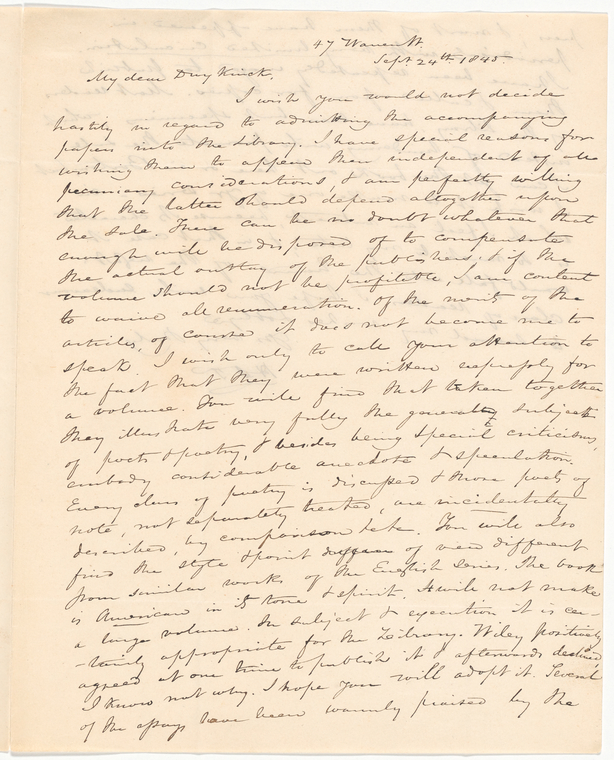 47 Warren St.
Sept. 24th 1845
My dear Duyckinck,
I wish you would not decide
hastily in regard to admitting the accompanying
papers into the Library. I have special reasons for
wishing them to appear then independent of all
pecuniary considerations, & am perfectly willing
that the latter should depend altogether upon
the sale. There can be no doubt whatever that
enough will be disposed of to compensate
the actual outlay of the publishers; & if the
volume should not be profitable, I am content
to waive all remuneration. Of the merit of the
articles, of course it does not become me to
speak. I wish only to call your attention to
the fact that they were written expressly for
a volume. You will find that taken together
they illustrate very fully the general subject
of poets & poetry, & besides being special criticisms,
embody considerable anecdote & speculation.
Every class of poetry is discussed & more poets of
note, not separately treated, are incidentally
described, by comparison &c. You will also
find the style & point of view different
from similar works of the English series. The book
is American in its tone & spirit. It will not make
a large volume. In subject & execution it is cer-
-tainly appropriate for the Library. Wiley positively
agreed at one time to publish it & afterwards declined,
I know not why. I hope you will adopt it. Several
of the essays have been warmly praised by the